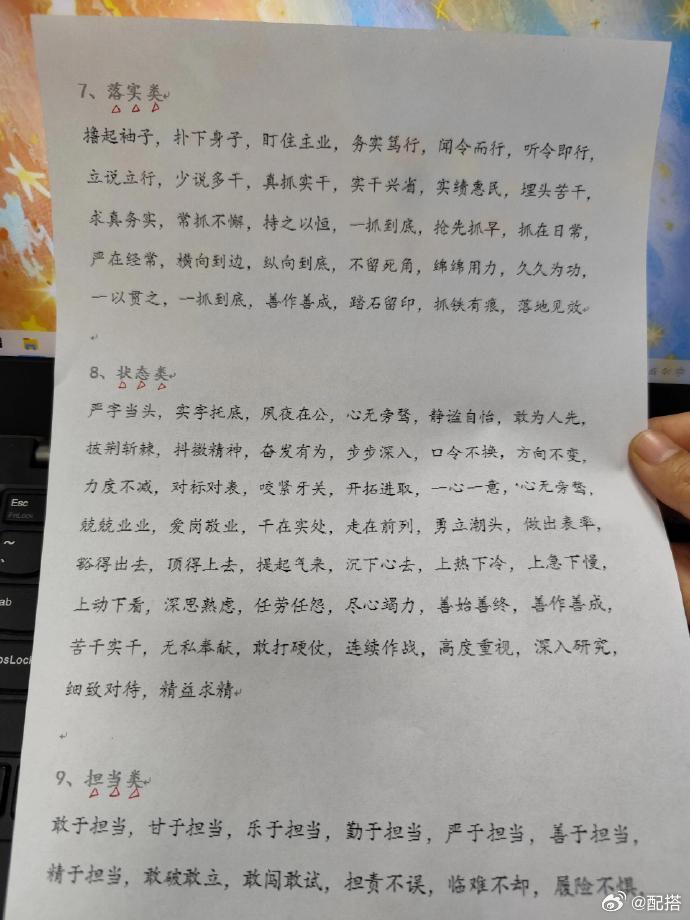 7、落实类
撸起袖子，扑下身子，盯住主业，务实笃行，闻令而行，听令即行，
立说立行，少说多干，真抓实干，实干兴省，实绩惠民，埋头苦干，
求真务实，常抓不懈，持之以恒，一抓到底，抢先抓早，抓在日常，
严在经常，横向到边，纵向到底，不留死角，绵绵用力，久久为功，
一以贯之，一抓到底，善作善成，踏石留印，抓铁有痕，落地见效
8、状态类
严字当头，实字托底，夙夜在公，心无旁骛，静谧自怡，敢为人先，
披荆斩棘，抖擞精神，奋发有为，步步深入，口令不换，方向不变，
力度不减，对标对表，咬紧牙关，开拓进取，一心一意，心无旁骛，
兢兢业业，爱岗敬业，干在实处，走在前列，勇立潮头，做出表率，
豁得出去，顶得上去，提起气来，沉下心去，上热下冷，上急下慢，
上动下看，深思熟虑，任劳任怨，尽心竭力，善始善终，善作善成，
苦干实干，无私奉献，敢打硬仗，连续作战，高度重视，深入研究，
细致对待，精益求精
9、担当类
敢于担当，甘于担当，乐于担当，勤于担当，严于担当，善于担当，
精于担当，敢破敢立，敢闯敢试，担责不误，临难不却，履险不惧，
Esc
FnLock
@配搭